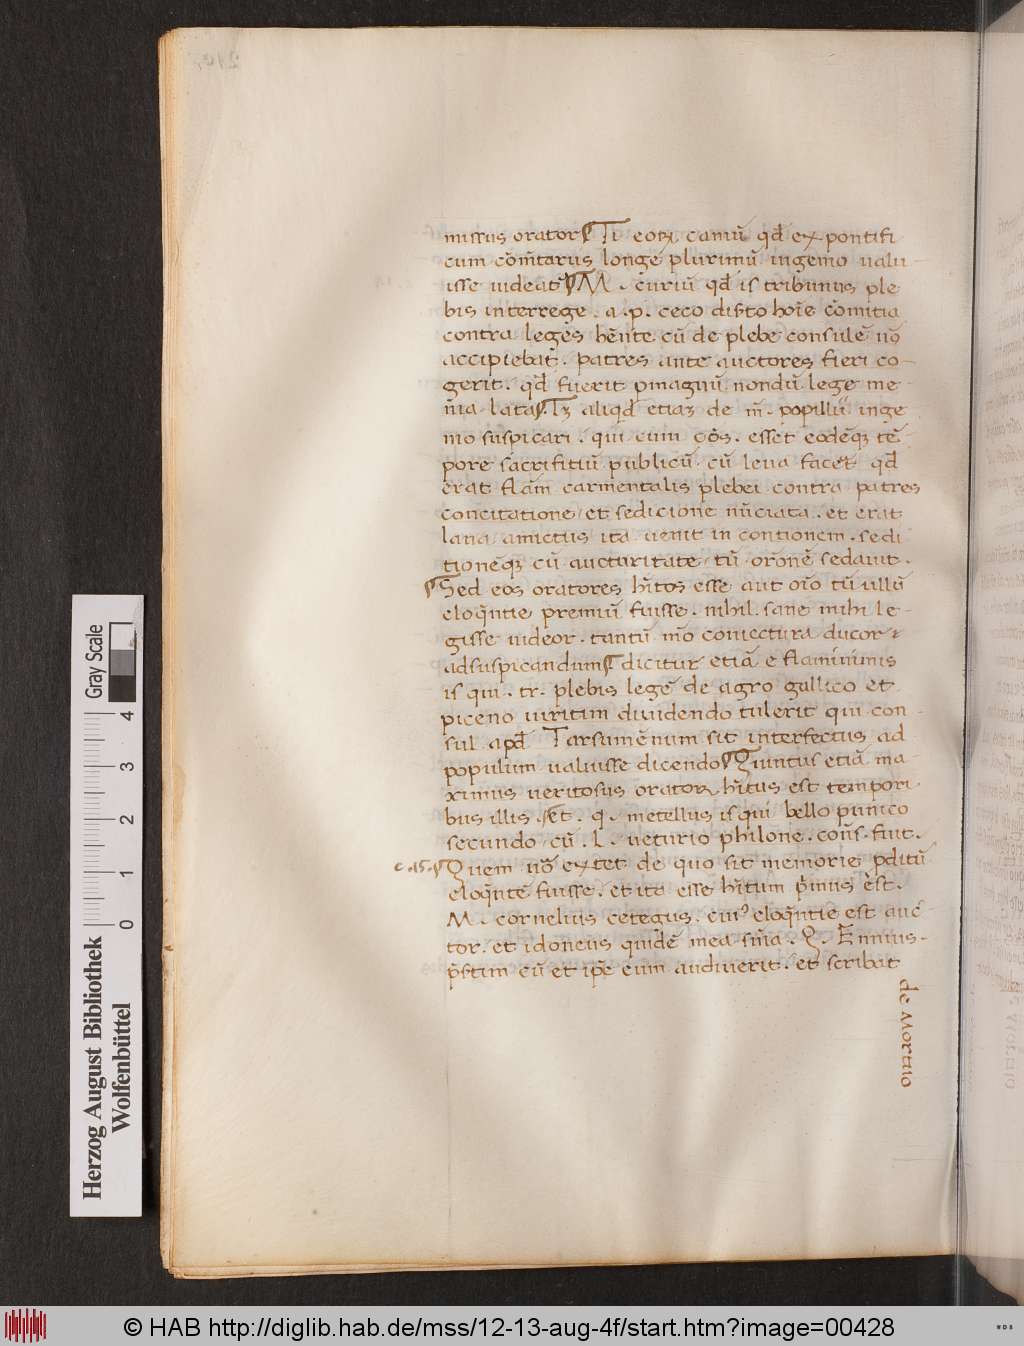 missus orator ¶ Ti eoꝝ camū qđ ex pontifi
cum cōm̄tariis longe plurimū ingenio ualu
isse uideat᷑ ¶ M. curiū qđ is tribunus ple
bis interrege. a. p. ceco diſto hoīe comitia
contra leges hēnte cū de plebe consulē nō
accipiebat. patres ante auctores fieri co-
gerit. qđ fuerit pmagnū nondū lege me-
nīa lata ¶ Iꝫ aliqđ etiaꝫ de m̄. popillii inge
nio suspicari. qui cum cōs. esset eodēqꝫ tē-
pore sacrifitiū publicū cū leua facet qđ
erat flam̄ carmentalis plebei contra patres
concitatione et sedicione nūciata. et erat
lana amictus ita uenit in contionem. sedi
tionēqꝫ cū aucturitate tū orōnē sedauit.
¶ Sed eos oratores hītos esse aut oīo tū ullū
eloq̄ntie premiū fuisse. nihil. sane mihi le-
gisse uideor. tantū mō coniectura ducor
adsuspicandum ¶ dicitur etiā e flaminimis
is qui. tr. plebis legē de agro gallico et
piceno uiritim diuidendo tulerit qui con-
sul apđ Tarsumēnum sit interfectus ad
populum ualuisse dicendo ¶ Quintus etiā ma-
ximus ueritosus orator hītus est tempori-
bus illis. et. q. metellus is qui bello punico
secundo cū. L. ueturio philone. coñs. fuit.
c. 15. ¶ Quem uō extet de quo sit memorie pditū
eloq̄ntē fuisse. et ita esse hītum p̄mus est.
M. cornelius cetegus. cuiꝰ eloq̄ntie est auc-
tor. et idoneus quidē mea sn̄ia. Q. Ennius.
p̄stim cū et ip̄e eum audiuerit. et scribat
de mortuo
Gray Scale
0 1 2 3 4
Herzog August Bibliothek
Wolfenbüttel
© HAB http://diglib.hab.de/mss/12-13-aug-4f/start.htm?image=00428
WDB